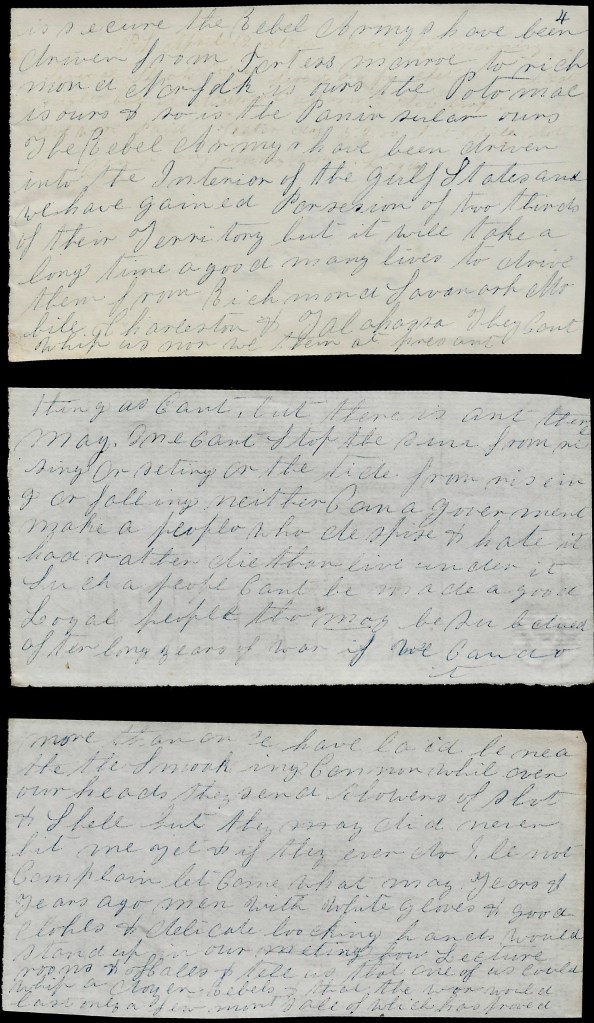 4
is secure the Rebel Armys have been
driven from Forters monroe to rich
mond Norfolk is ours the Potomac
is ours & so is the Panin sular ours
The Rebel Armys have been driven
into the Interior of the Gulf States and
we have gained Persesion of two thirds
of their Territory but it will take a
long time a good many lives to drive
them from Rich mond Savanark Mo
bile Charleston & Talapazza They Cant
whip us nor we them at present
thing us Cant, but there is ant
may. One Cant Stop the sun from ri
sing Or seting Or the tide from risein
g or falling neither Can a Goverment
make a people who despise & hate it
had ratter die than live under it
Such a peopl Cant be made a good
Loyal people tho may be Su bdued
after long years of war if we Can do
more than on ce have la id be nea
the the Smook ing Cannon whil over
our heads they send showers of shot
& Shell but they may did never
hit me yet & if they ever do I. le not
Complain let Come what may. Years &
Years ago men with white gloves & good
Cloths & delicate loocking hands would
stand up in our meeting how Lecture
rooms & ofices & tell us that one of us could
whip a dozen rebels & that the war would
last only a few mont s all of which has proved